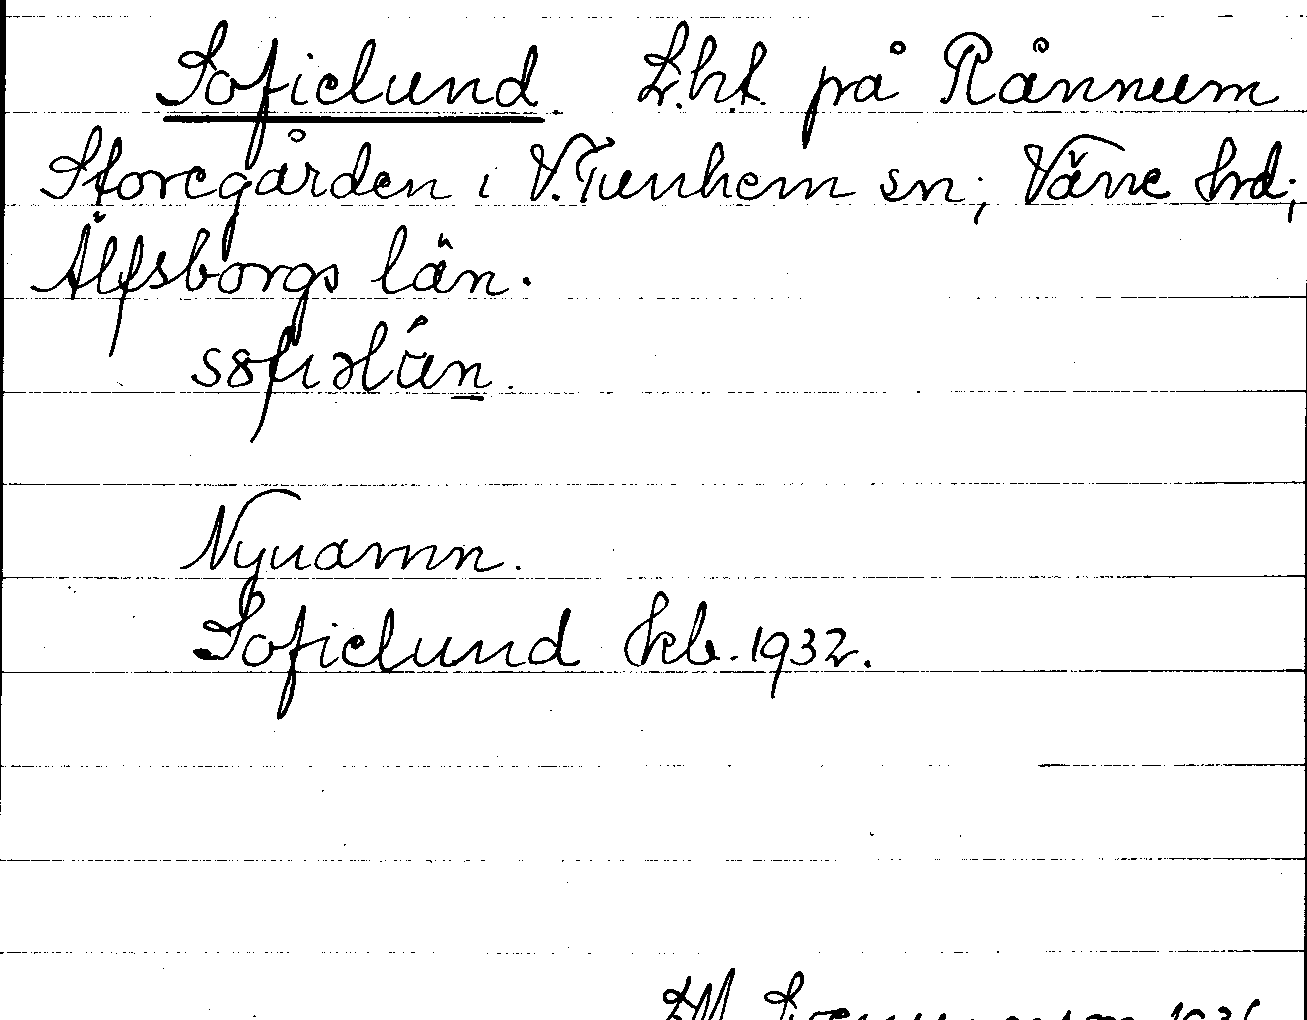 Sofielund. L.h.t. på Rånnum
Storegården i V.Tunhem sn; Väne hrd;
Älfsborgs län.
Nynamn.
Sofielund Jkb. 1932.